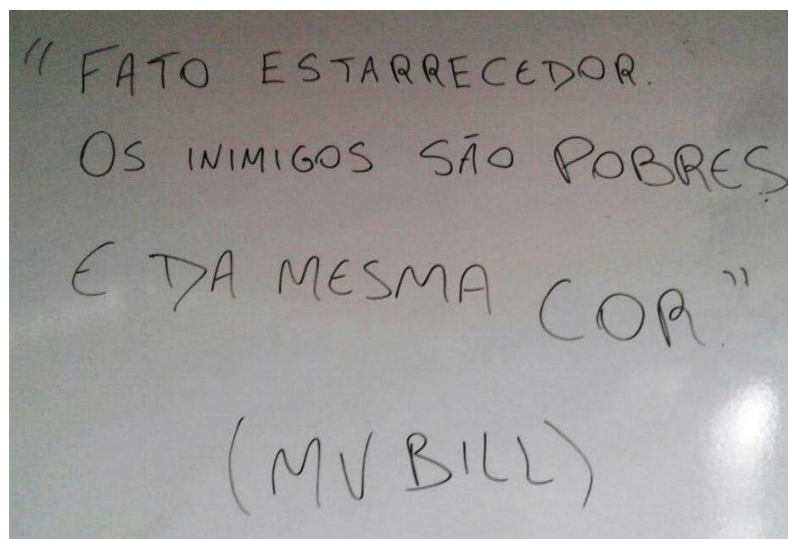 "FATO ESTARRECEDOR.
OS INIMIGOS SÃO POBRES
E DA MESMA COR."
(MV BILL)